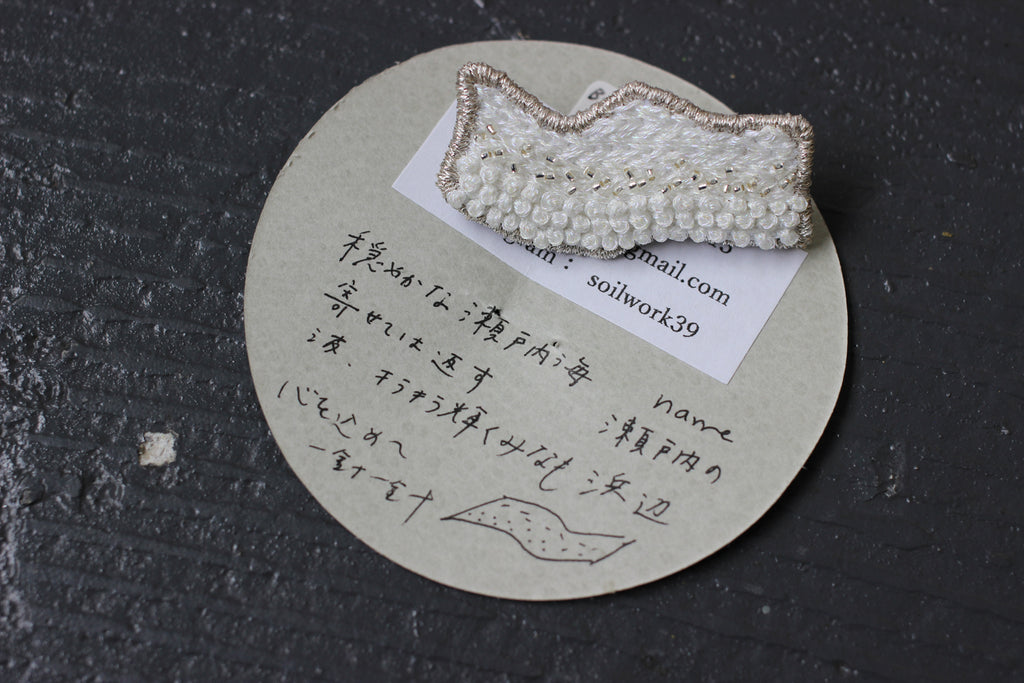 B
gram :
@gmail.com
soilwork39
穏やかな瀬戸内海
寄せては返す
波、キラキラ輝くみなも
心を込めて
一針一針
name
瀬戸内の
浜辺